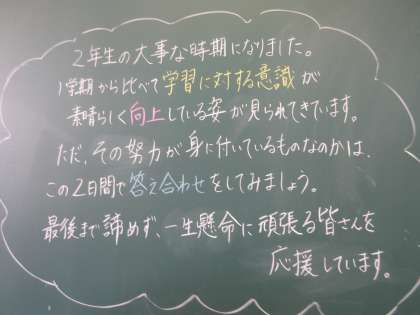 2年生の大事な時期になりました。
1学期から比べて学習に対する意識が
素晴らしく向上している姿が見られてきています。
ただ、その努力が身に付いているものなのかは、
この2日間で答え合わせをしてみましょう。
最後まで諦めず、一生懸命に頑張る皆さんを
応援しています。